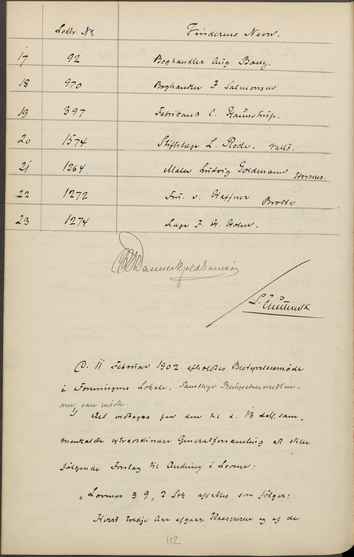 Lodts Nr. Vinderens Navn.
17 92 Boghandler Aug. Bang.
18 970 Boghandler J. Salmonsen
19 397 Fabrikant C.
20 1574 L. Rode.
21 1264 Maler Ludvig Goldmann
22 1272 Fru v. Haffner
23 1274 Læge F. A. Holm.
Danneskjold Samsøe
D. 11 Februar 1902 afholdtes Bestyrelsesmøde
i Foreningens Lokale. Samtlige Bestyrelsesmedlem-
mer var mødt.
1) Det vedtoges paa den til d. 18 ds. sam-
menkaldte extraordinære Generalforsamling at stille
følgende Forslag til Ændring i Lovene:
"Lovenes § 9, 2 Stk affattes som følger:
Hvert tredje Aar afgaar Kassereren og af de
112